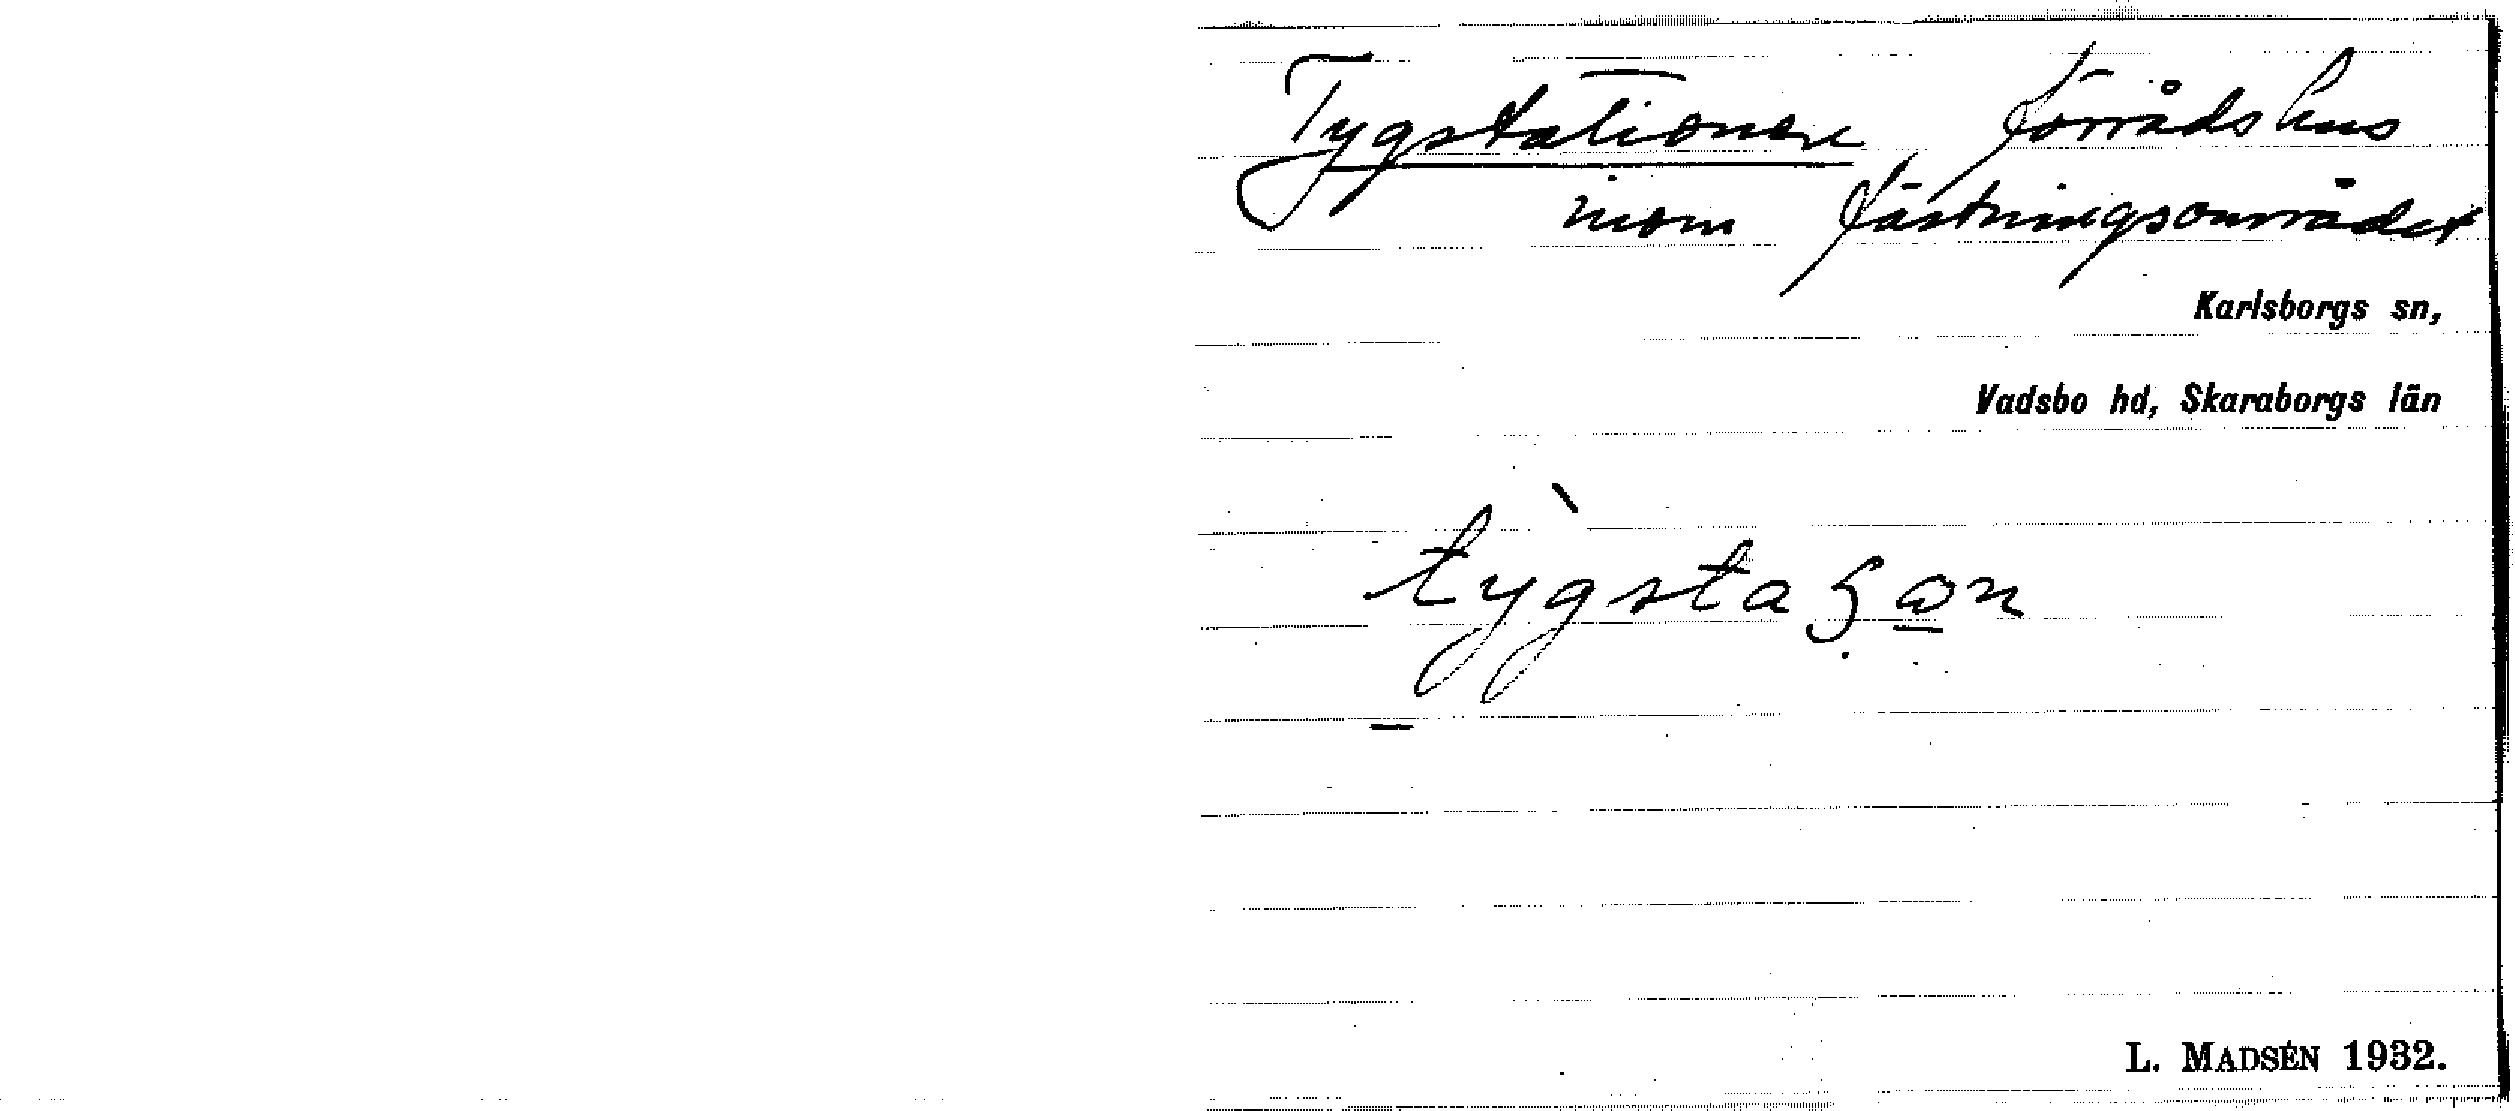 Tygstationen förrådshus
inom fästningsområdet
Karlsborgs sn,
Vadsbo hd, Skaraborgs län
L. MADSÉN 1932.